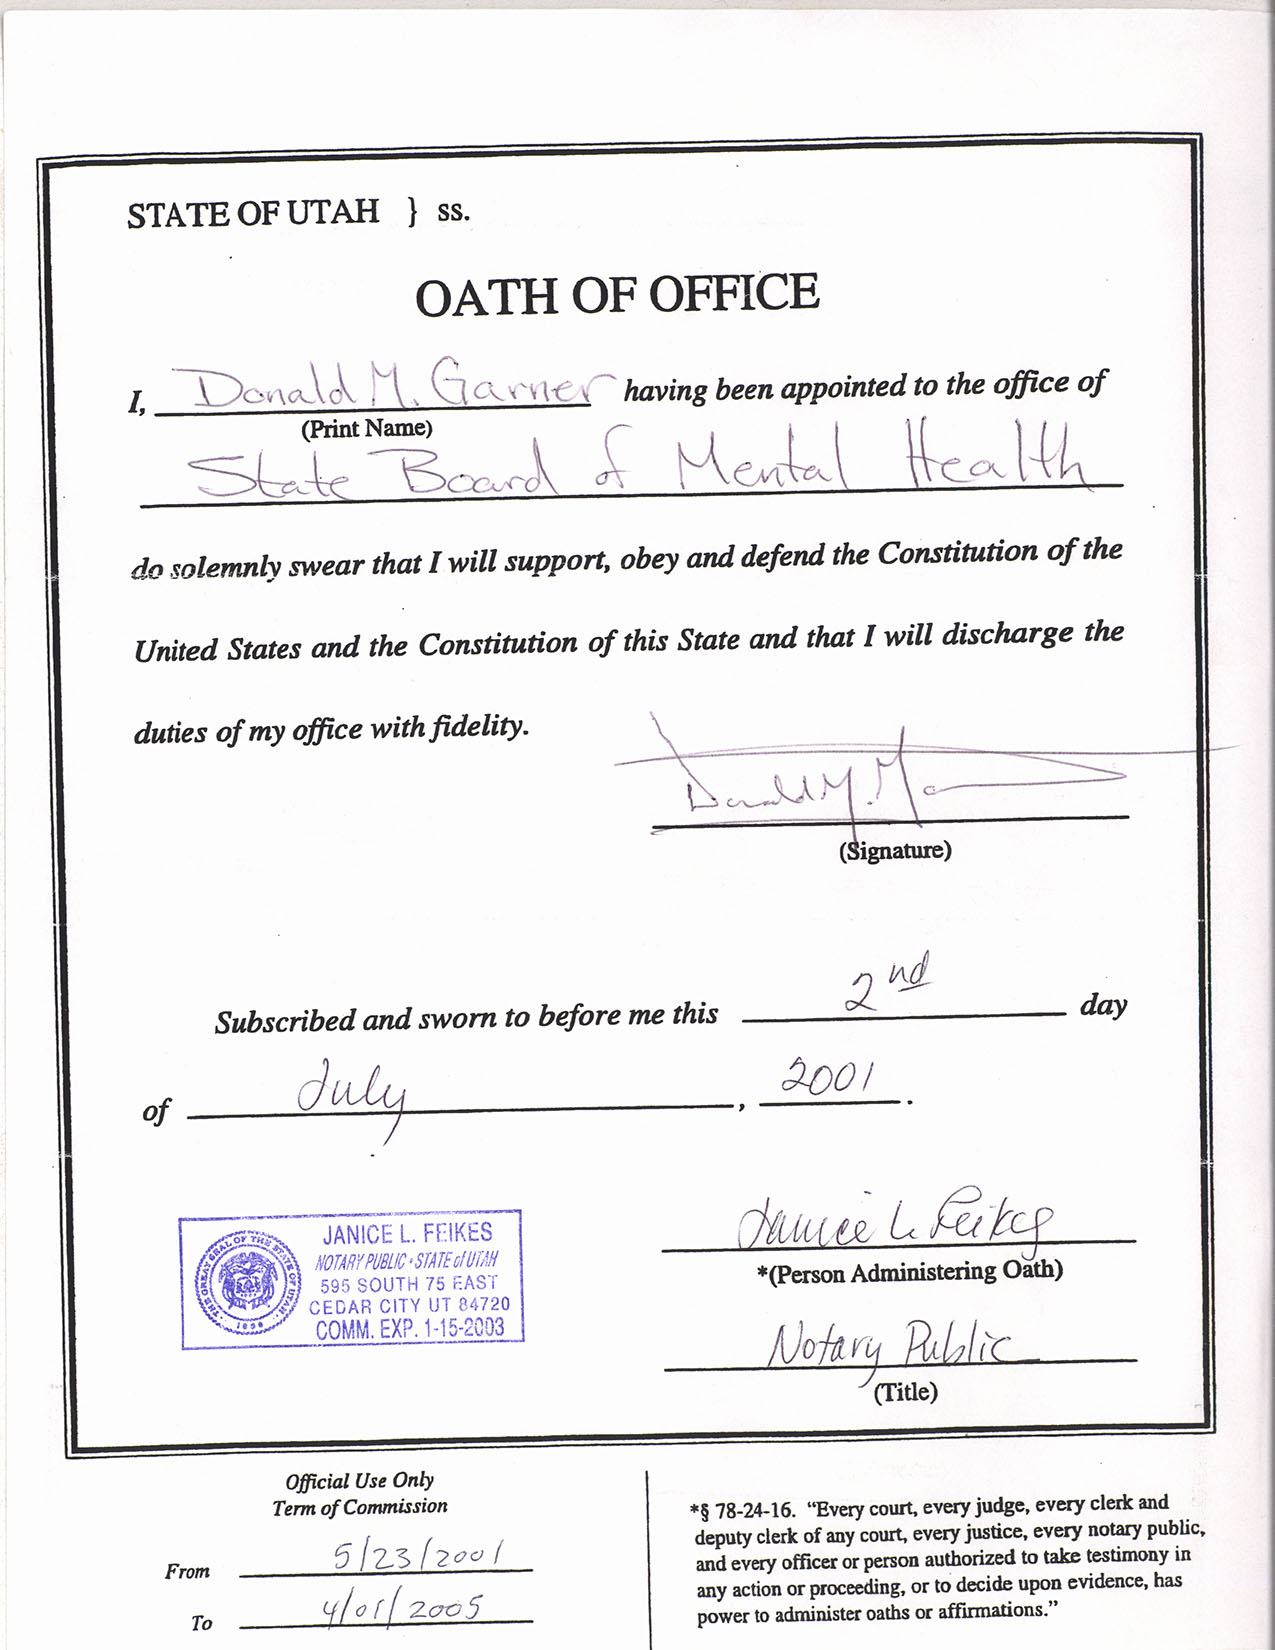 STATE OF UTAH } ss.
OATH OF OFFICE
I, Donald M. Garner having been appointed to the office of
(Print Name)
State Board of Mental Health
do solemnly swear that I will support, obey and defend the Constitution of the
United States and the Constitution of this State and that I will discharge the
duties of my office with fidelity.
Donald M.
(Signature)
Subscribed and sworn to before me this 2nd day
of July, 2001.
Janice L. Feikes
*(Person Administering Oath)
Notary Public
(Title)
THE GREAT SEAL OF THE STATE OF UTAH
1896
JANICE L. FEIKES
NOTARY PUBLIC • STATE of UTAH
595 SOUTH 75 EAST
CEDAR CITY UT 84720
COMM. EXP. 1-15-2003
Official Use Only
Term of Commission
From 5/23/2001
To 4/01/2005
*§ 78-24-16. "Every court, every judge, every clerk and
deputy clerk of any court, every justice, every notary public,
and every officer or person authorized to take testimony in
any action or proceeding, or to decide upon evidence, has
power to administer oaths or affirmations."